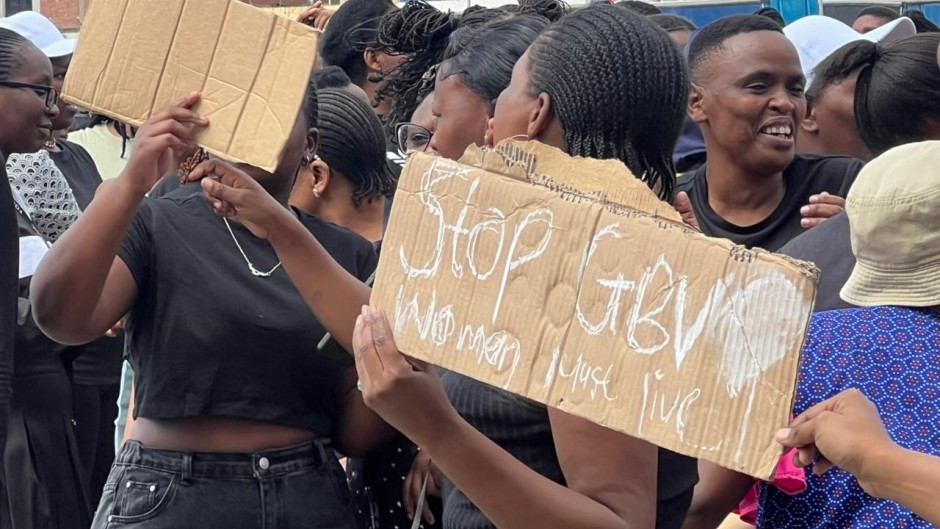 Stop GBV
Women Must live